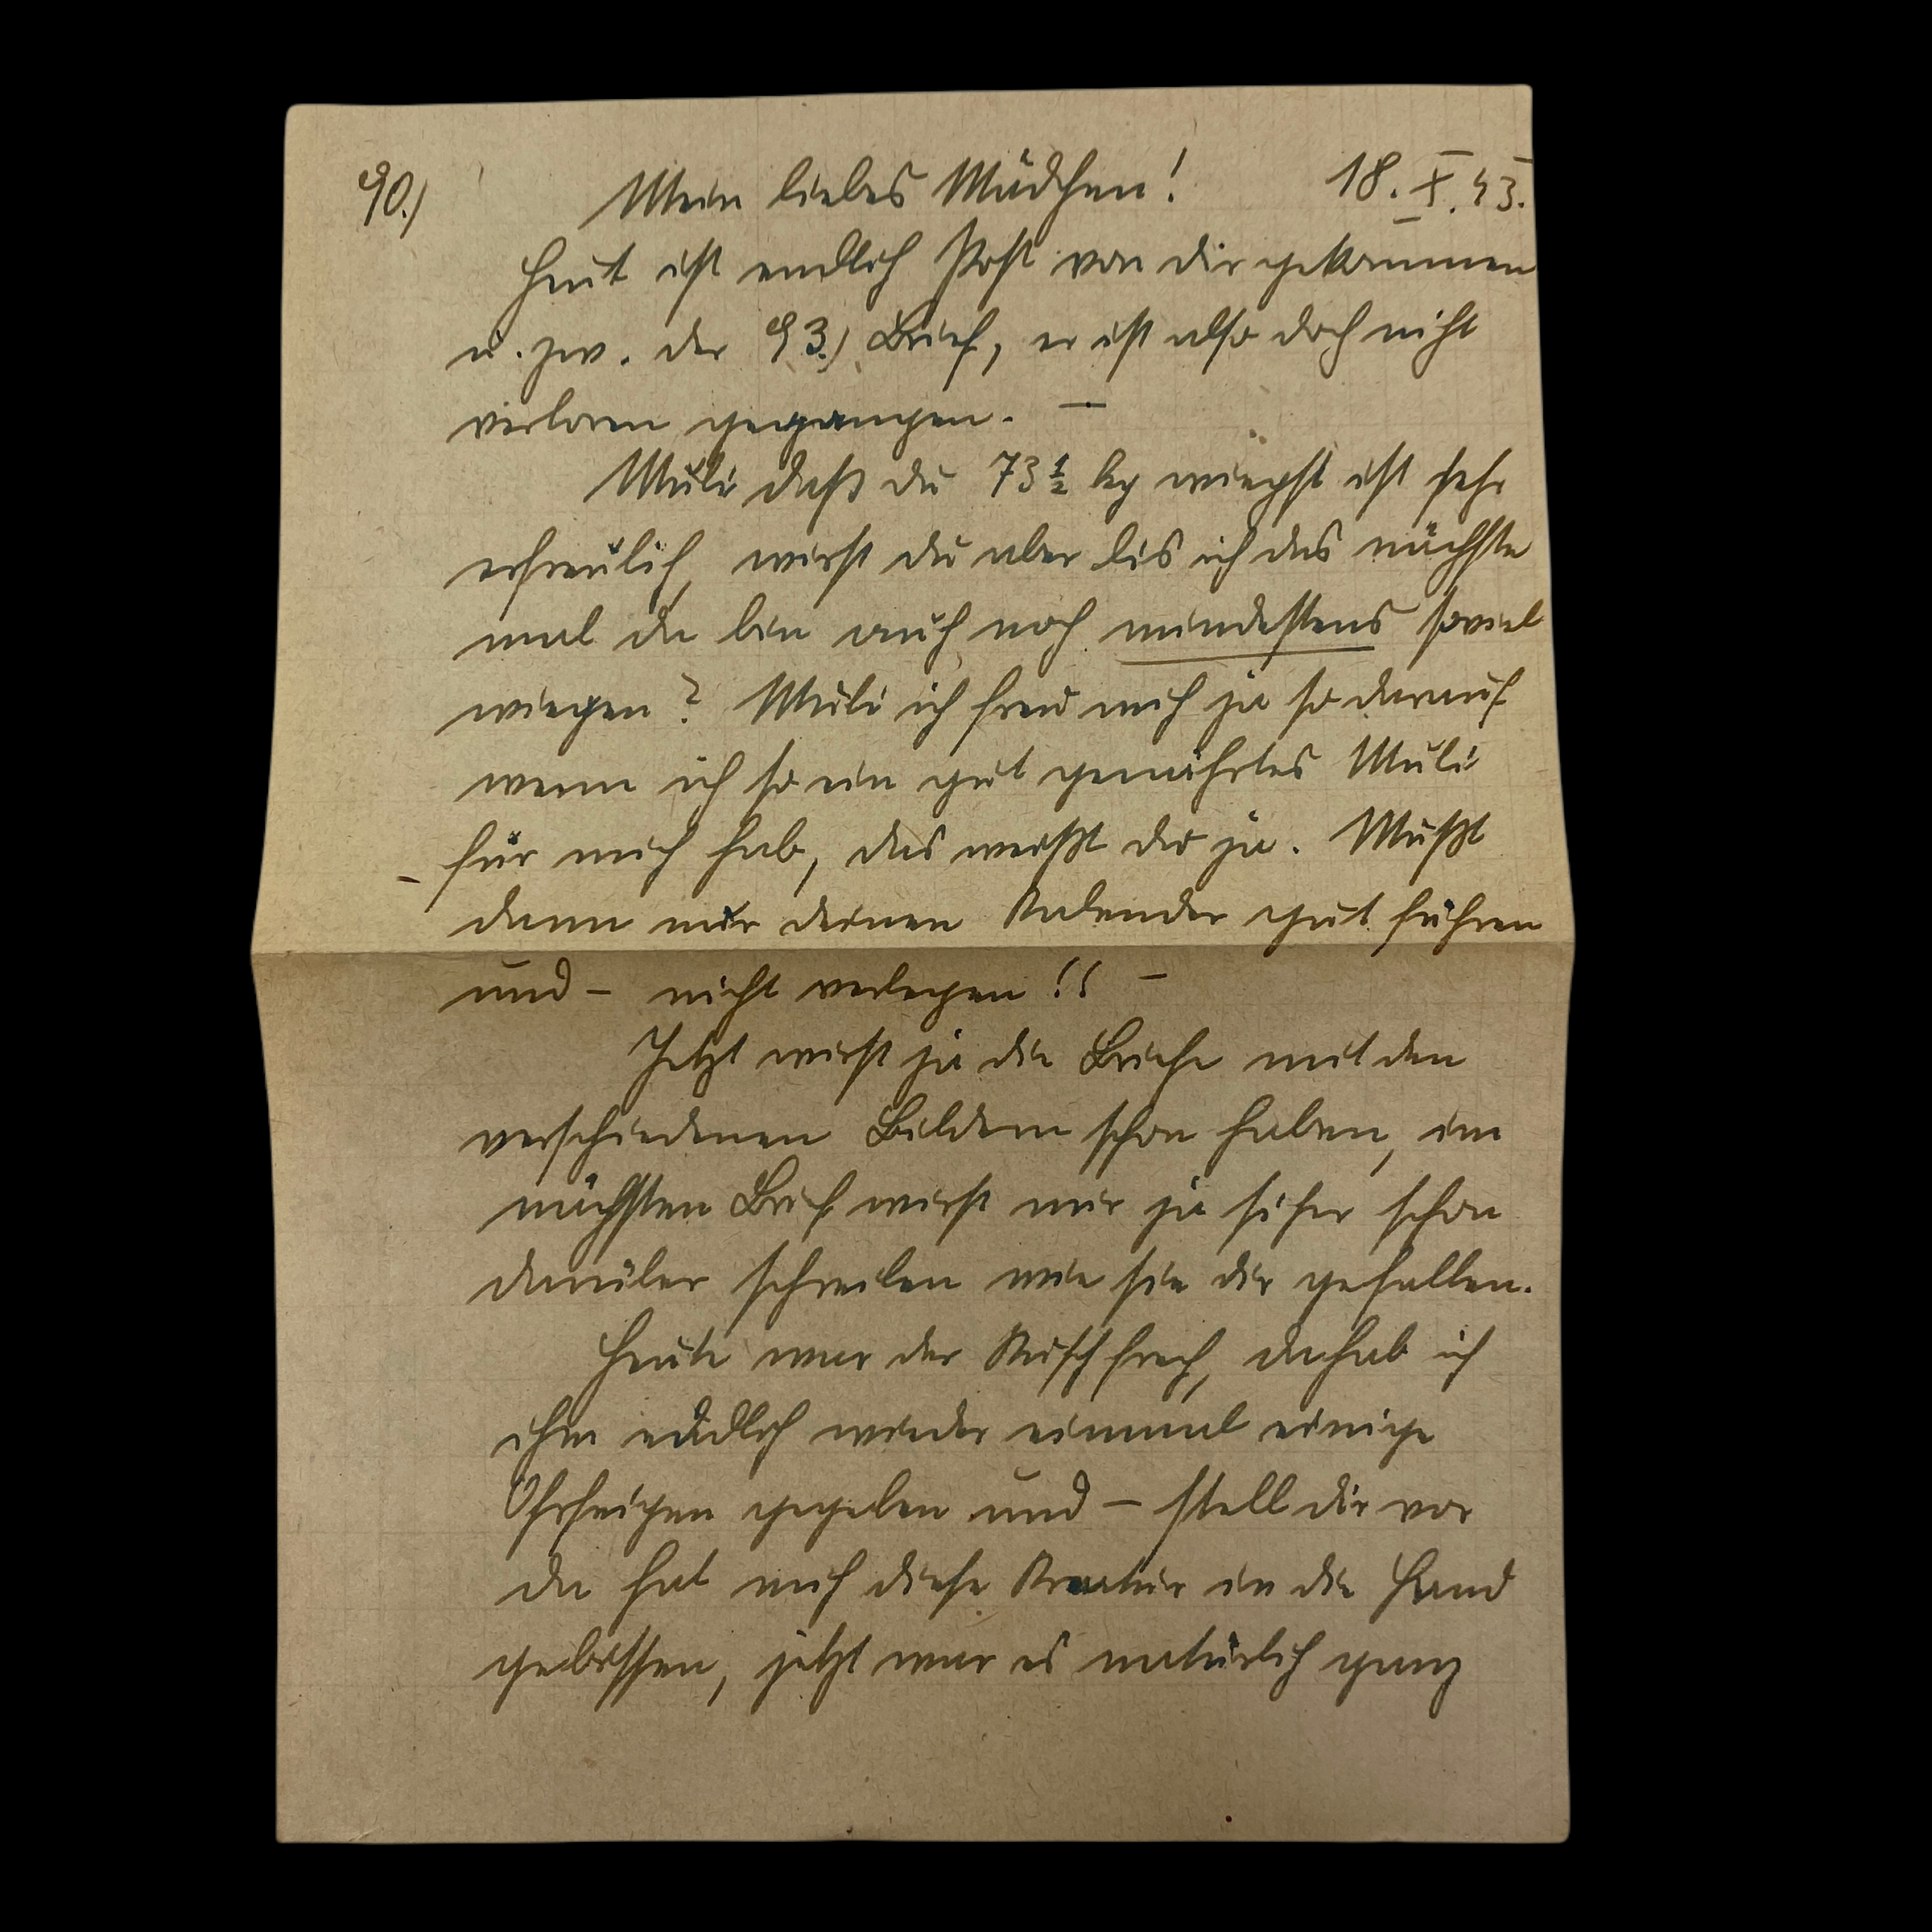 90.) Mein liebes Mädchen! 18. X. 43.
Heut ist endlich Post von dir gekommen
u. zw. der 93.) Brief, er ist also doch nicht
verloren gegangen. —
Muli daß du 73 ½ kg wiegst ist sehr
erfreulich, wirst du aber bis ich das nächste
mal da bin auch noch mindestens soviel
wiegen? Muli ich freu mich ja so darauf
wenn ich so ein gut genährtes Muli
für mich hab, das weißt du ja. Mußt
dann nur deinen Kalender gut führen
und – nicht verlegen!! –
Jetzt wirst ja die Briefe mit den
verschiedenen Bildern schon haben, im
nächsten Brief wirst mir ja sicher schon
darüber schreiben wie sie dir gefallen.
Heute war der frech, da hab ich
ihm endlich wieder einmal einige
Ohrfeigen gegeben und – stell dir vor
da hat mich diese Kreatur in die Hand
gebissen, jetzt war es natürlich ganz